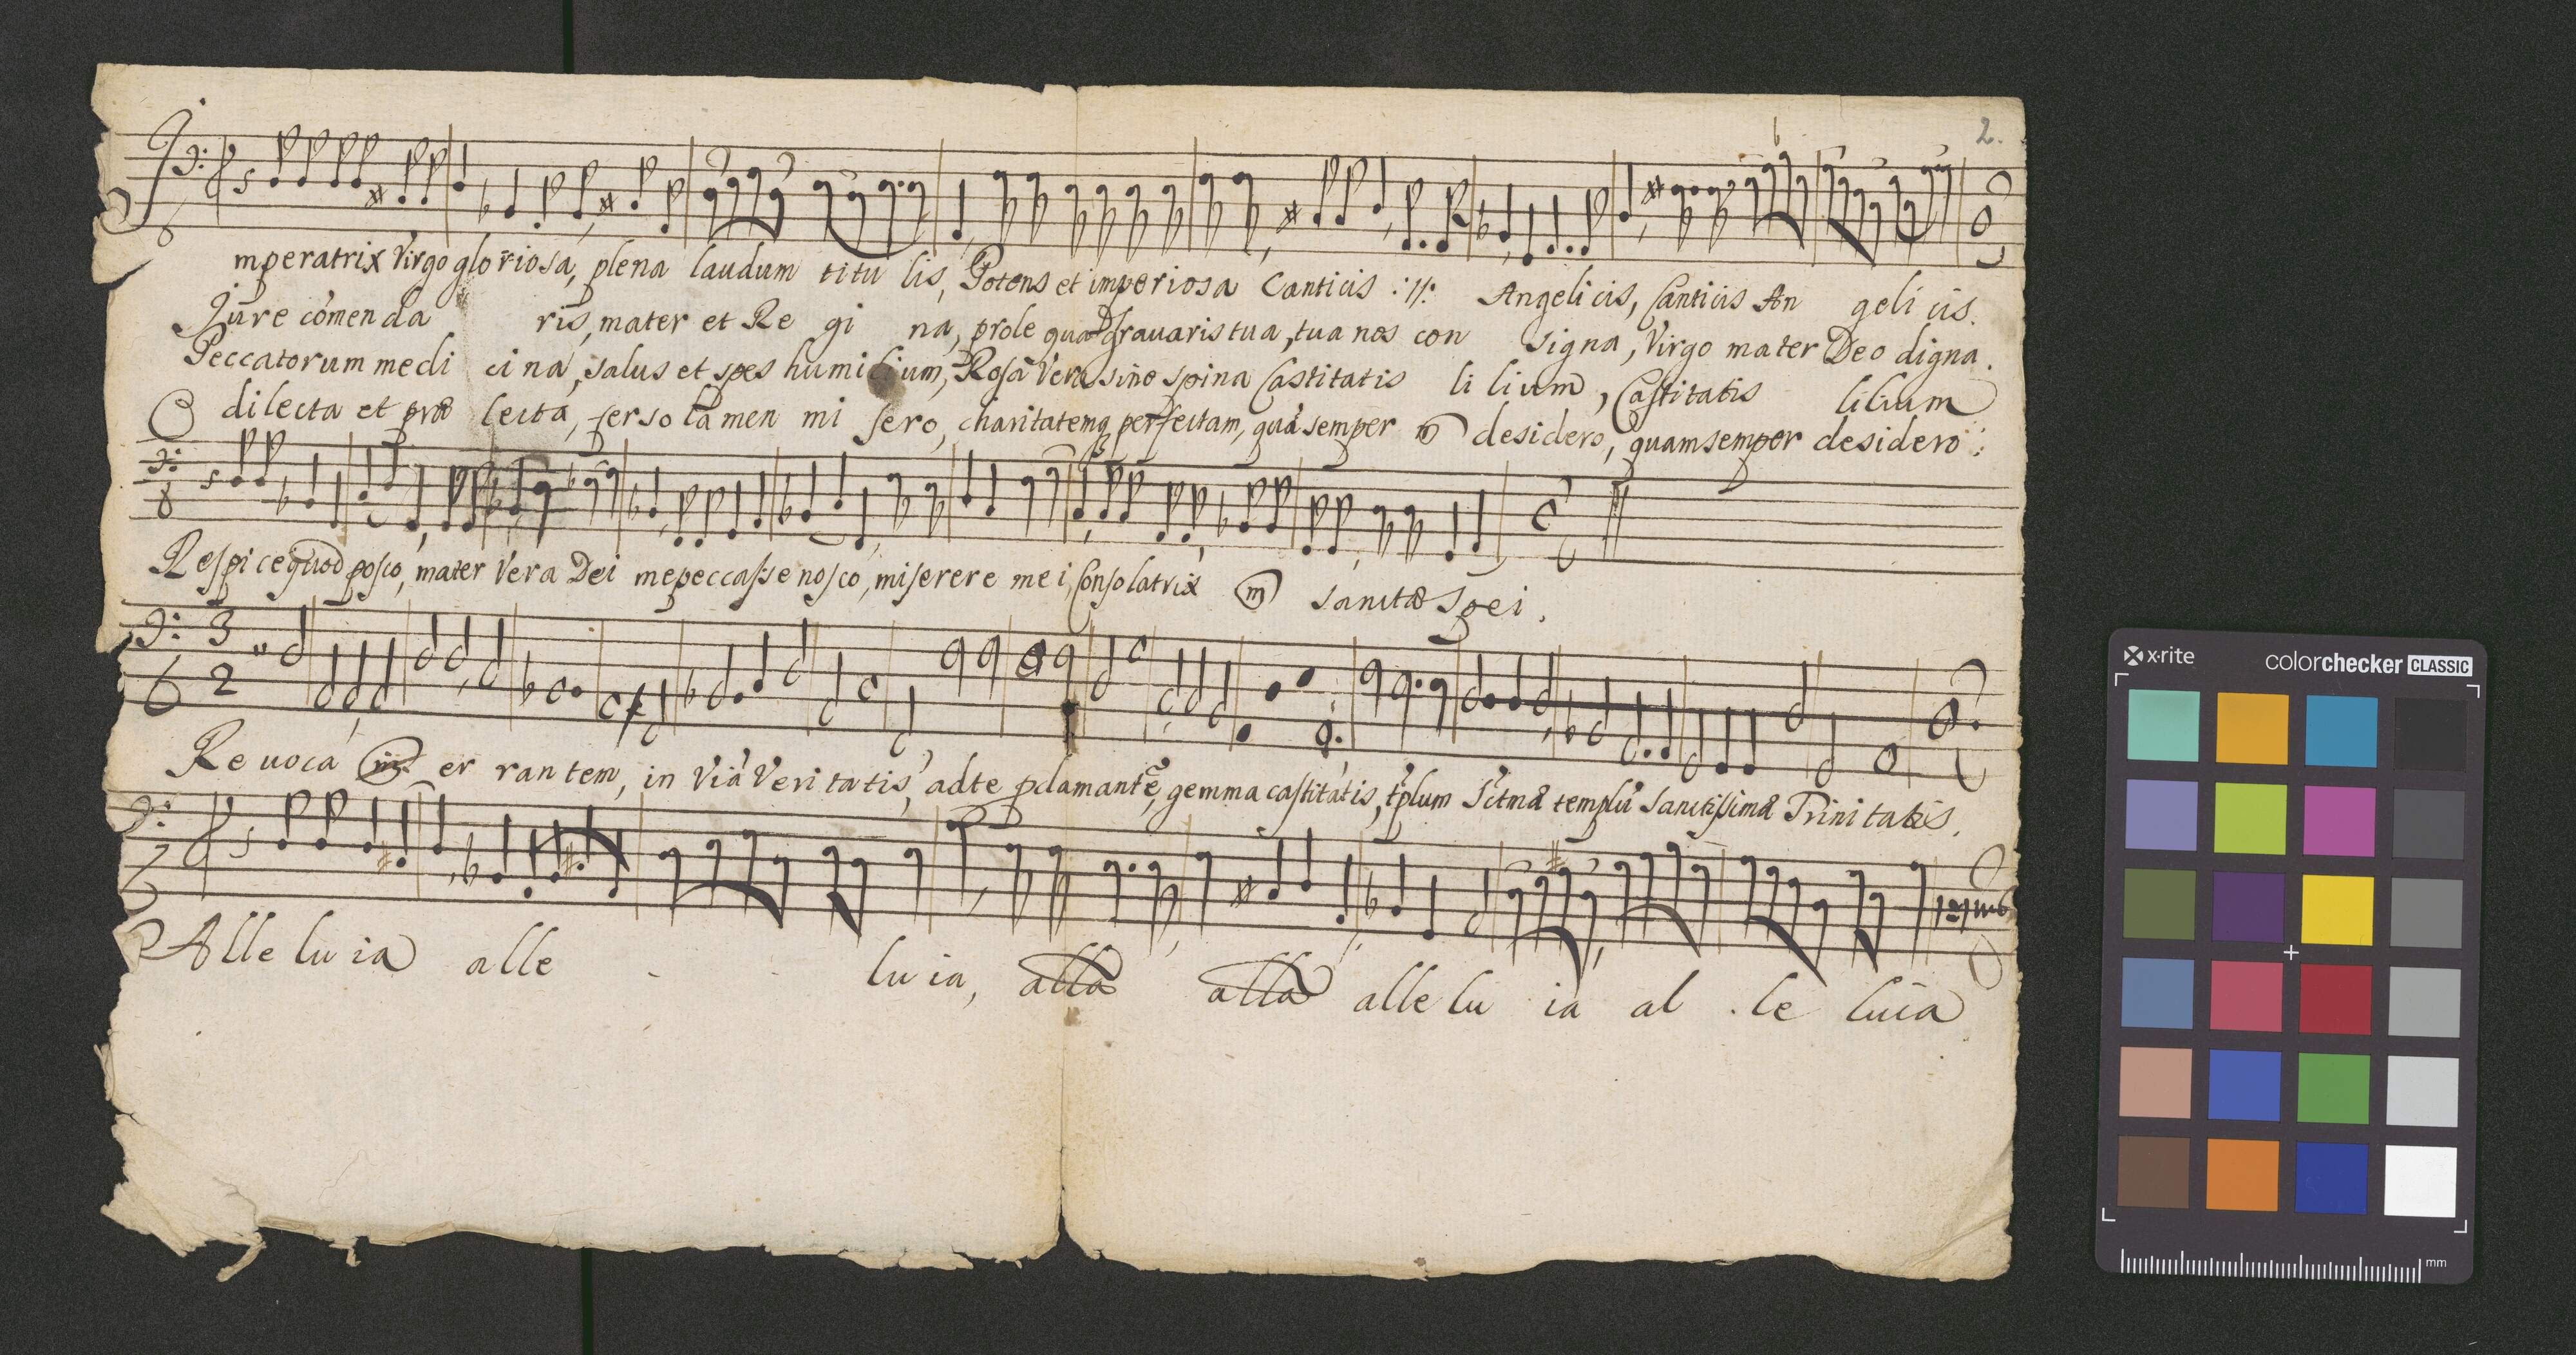 2.
Imperatrix Virgo gloriosa, plena laudum titu lis, Potens et imperiosa Canticis :||: Angelicis, Canticis An geli cis.
Jure cõmen da ris, mater et Re gi na, prole qua grauaris tua, tua nos con signa, Virgo mater Deo digna.
Peccatorum medi ci na, salus et spes humilium, Rosa Vera sine spina Castitatis li lium, Castitatis lilium
O dilecta et præ lecta, fer so la men mi sero, charitatemq perfectam, quã semper desidero, quam semper desidero:
Respice quod posco, mater Vera Dei me peccasse nosco, miserere mei, Consolatrix sanctæ spei.
3
2
Re uoca er ran tem, in Viã Veri tatis, ad te pclamantẽ, gemma castitatis, templũ sanctissimæ Trini tatis.
Alle lu ia alle - - lu ia, alla alla alle lu ia al . le luia
x-rite
colorchecker CLASSIC
mm